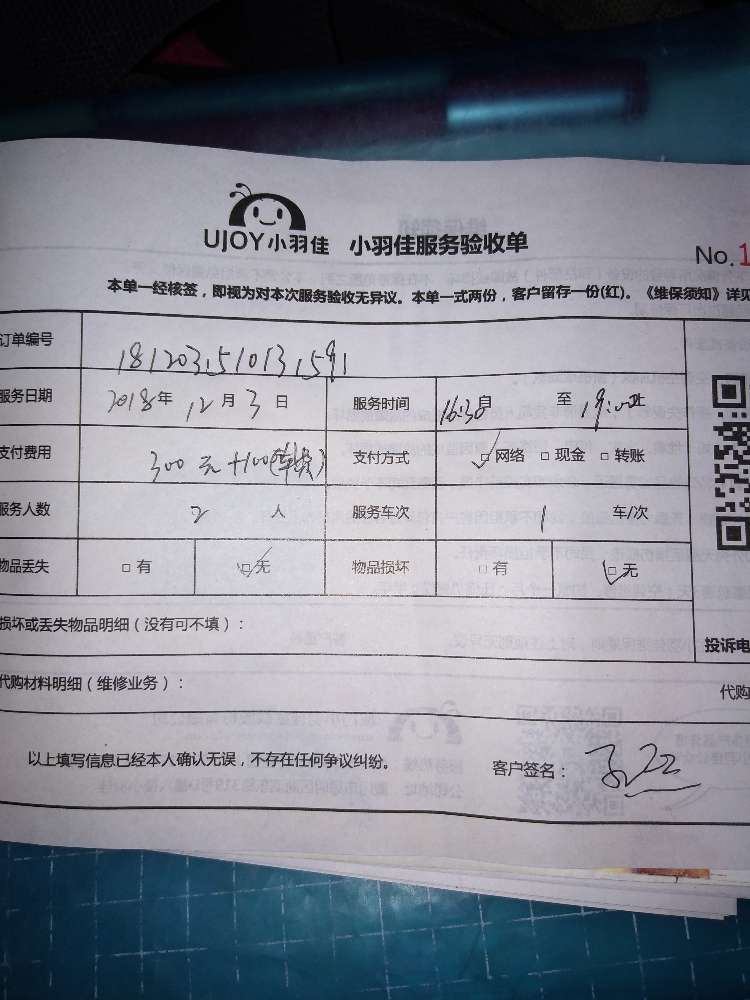 UJOY小羽佳 小羽佳服务验收单
No.1
本单一经核签，即视为对本次服务验收无异议。本单一式两份，客户留存一份(红)。《维保须知》详见
订单编号 181203510131591
服务日期 2018年 12月 3日 服务时间 16:30自 至 19:00止
支付费用 300 元+100(车费) 支付方式 □网络 □现金 □转账
服务人数 2 人 服务车次 1 车/次
物品丢失 □有 □无 物品损坏 □有 □无
损坏或丢失物品明细（没有可不填）：
投诉电
代购材料明细（维修业务）：
代购
以上填写信息已经本人确认无误，不存在任何争议纠纷。 客户签名：